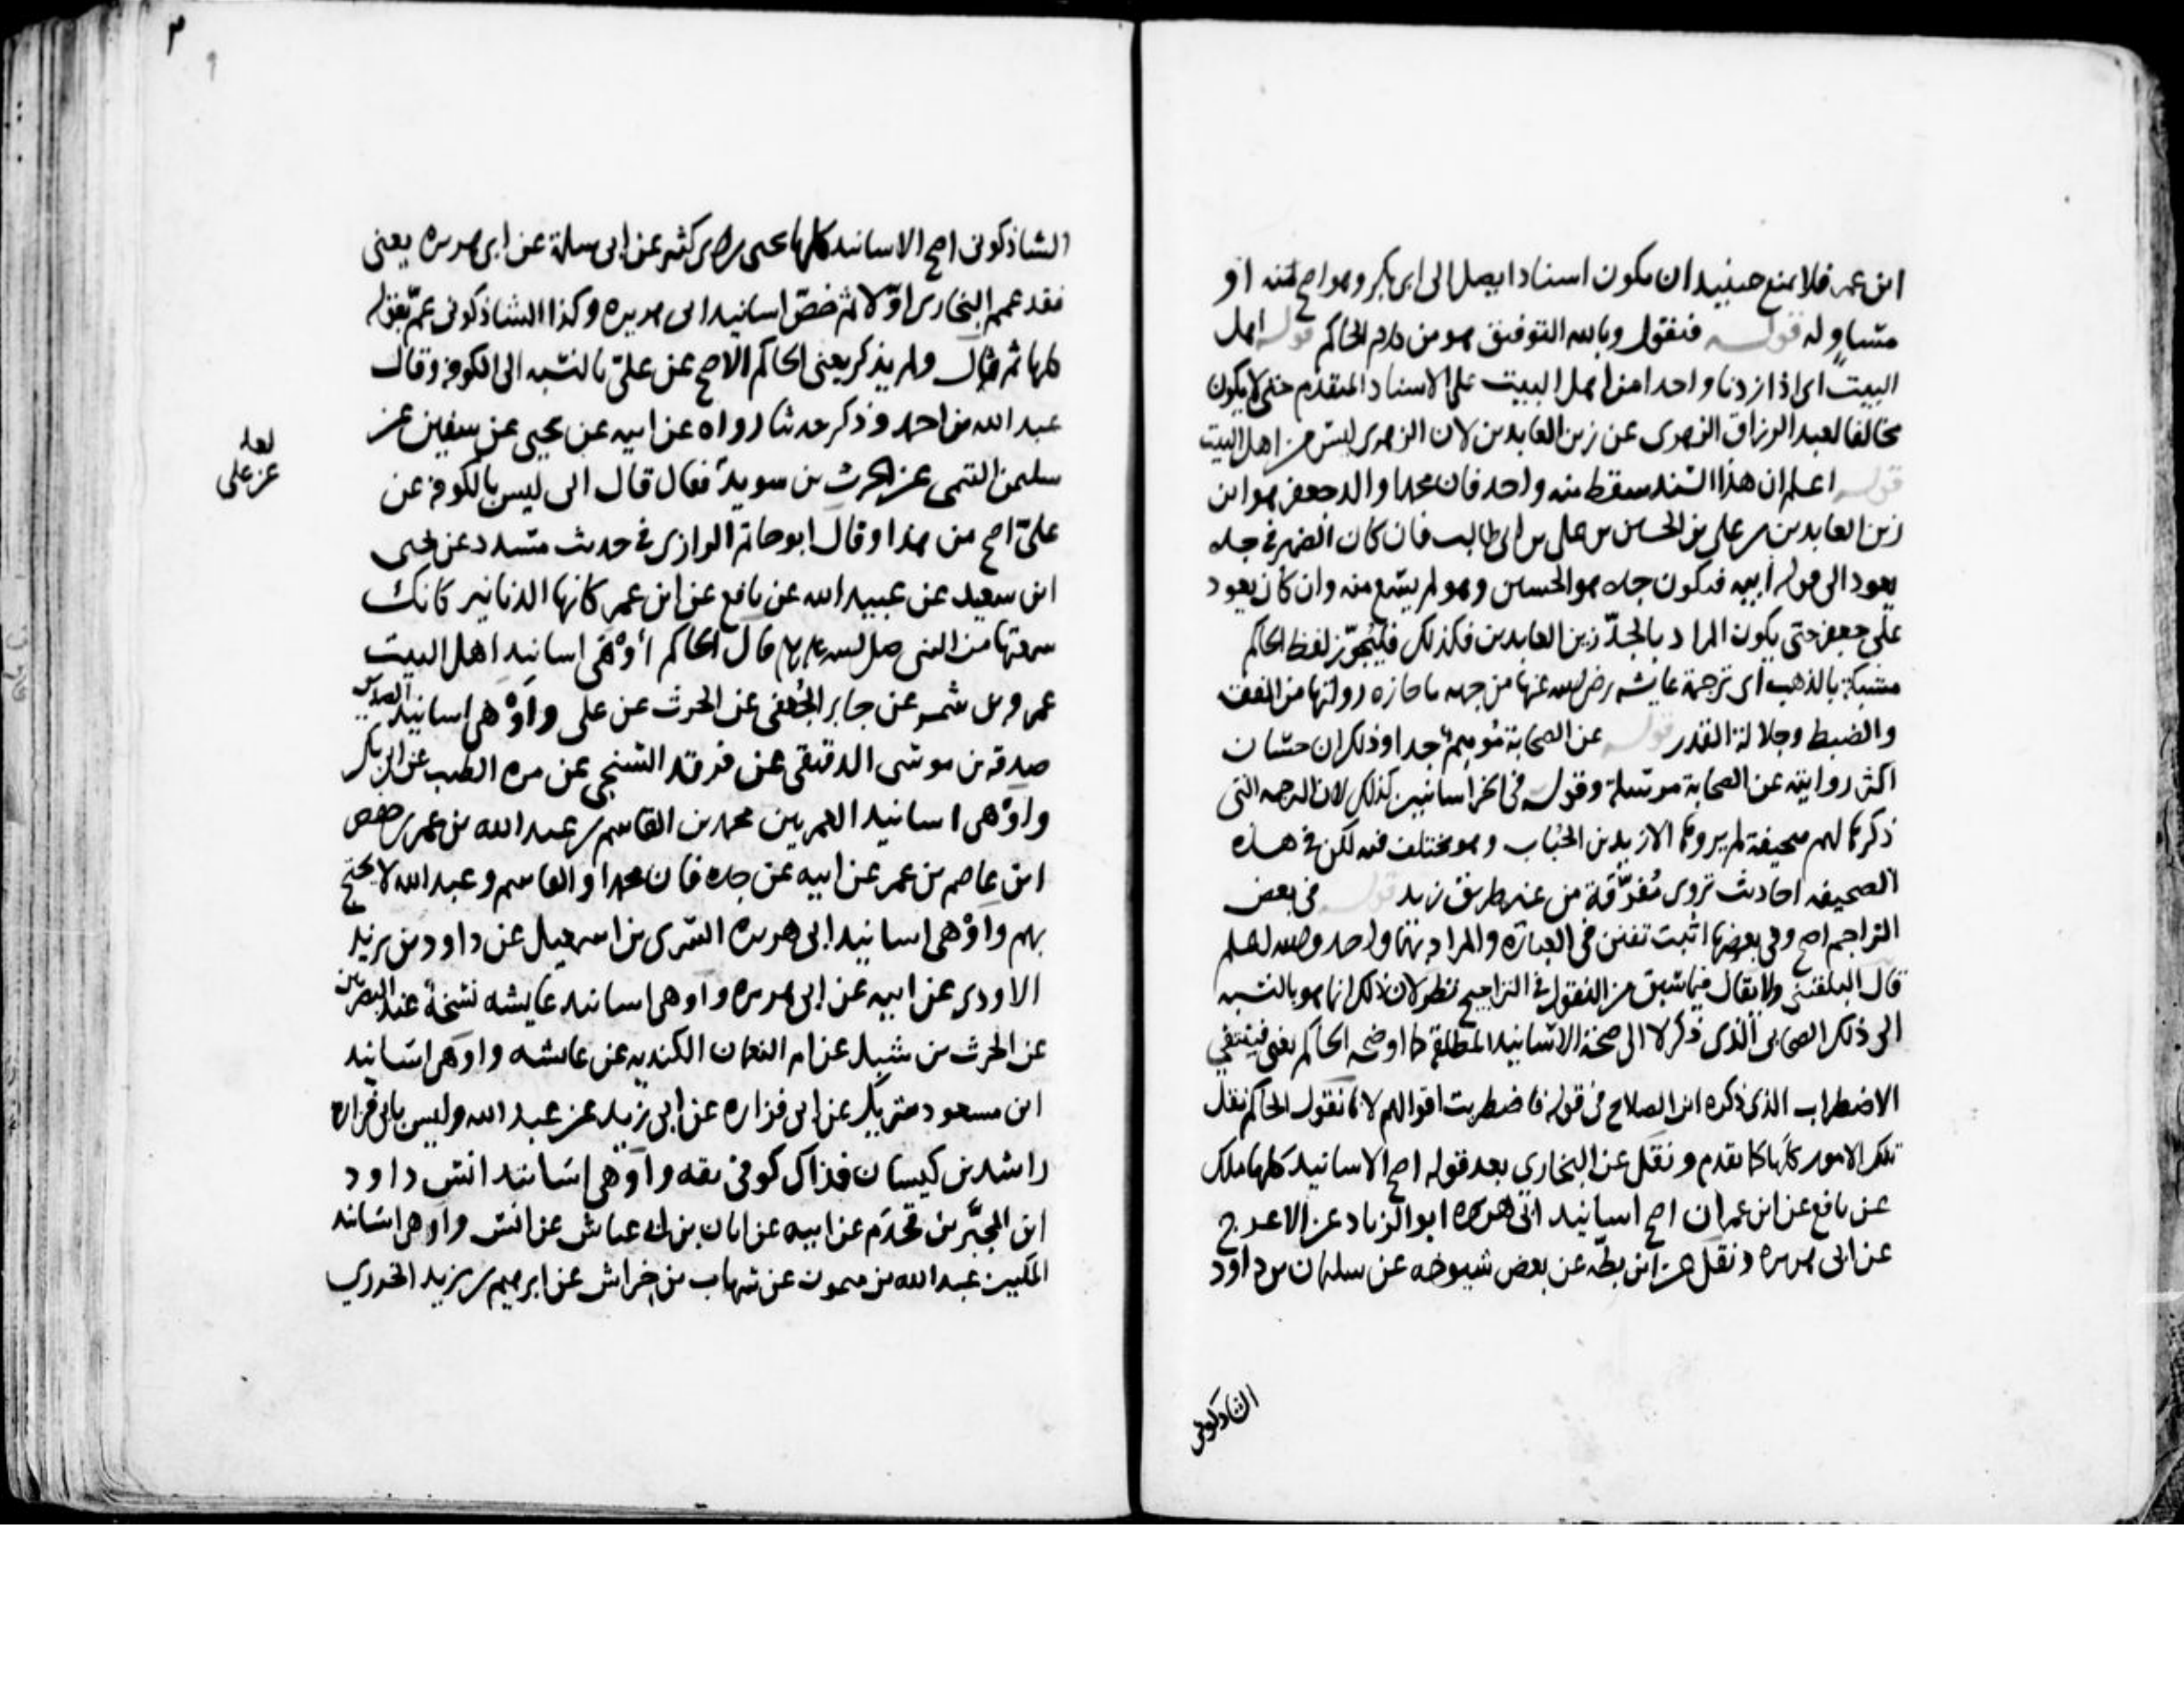 ابن عمر فلا يمنع حينيد ان يكون اسنادا يصل الى ابى بكر وهو اصح منه او
مساو له قوله فنقول وبالله التوفيق هو من كلام الحاكم قوله اهل
البيت اى اذا اردنا واحدا من اهل البيت على الاسناد المتقدم حتى لا يكون
مخالفا لعبد الرزاق الزهرى عن زين العابدين لان الزهرى ليس من اهل البيت
قوله اعلم ان هذا السند سقط منه واحد فان محمدا والد جعفر هو ابن
زين العابدين بن على بن الحسين بن على بن ابى طالب فان كان الضمير فى جده
يعود الى قوله ابيه فيكون جده هو الحسين وهو لم يسمع منه وان كان يعود
على جعفر حتى يكون المراد بالجد زين العابدين فكذلك لفظ الحاكم
مشبكة بالذهب اى ترجمة عايشه رضى الله عنها من جهه ما حازه رواتها من الفقه
والضبط وجلالة القدر قوله عن الصحابة جدا وذكر ان حسان
اكثر روايته عن الصحابة مرسلة وقوله فى كذلك لان الترجمه التى
ذكرها لهم صحيفة لم يروها الا زيد بن الحباب وهو مختلف فيه لكن فى هذه
الصحيفه احاديث تروى مفرقة من غير طريق زيد قوله فى بعض
التراجم اصح وفى بعضها اثبت تفنن فى العبارة والمراد بهما واحد والله اعلم
قال البلقينى ولا يقال فيما سبق من النقول فى التراجيح نظر لان ذلك انما هو بالنسبه
الى ذلك الصحابى الذى ذكر لا الى صحة الاسانيد المطلقة كما اوضحه الحاكم يعنى فينتفى
الاضطراب الذى ذكره ابن الصلاح فى قوله فاضطربت اقوالهم لانا نقول الحاكم نقل
تلك الامور كلها كما تقدم ونقل عن البخارى بعد قوله اصح الاسانيد كلها مالك
عن نافع عن ابن عمر ان اصح اسانيد ابى هريره ابو الزناد عن الاعرج
عن ابى هريره ونقل عن ابن بطه عن بعض شيوخه عن سليمان بن داود
الشاذكونى
الشاذكونى اصح الاسانيد كلها يحيى بن ابى كثير عن ابى سلمة عن ابى هريره يعنى
فقد عمم البخارى اولا ثم خص اسانيد ابى هريره وكذا الشاذكونى عم بقوله
كلها ثم قال ولم يذكر يعنى الحاكم الاصح عن على بالنسبه الى الكوفه وقال
عبد الله بن احمد وذكر حديثا رواه عن ابيه عن يحيى عن سفين عن
سليمن التيمى عن الحرث بن سويد فقال قال ابى ليس بالكوفه عن
لعله
عن على
على اصح من هذا وقال ابو حاتم الرازى فى حديث مسدد عن يحيى
ابن سعيد عن عبيد الله عن نافع عن ابن عمر كانها الدنانير كانك
سمعتها من النبى صلى الله عليه وسلم قال الحاكم اوهى اسانيد اهل البيت
عمرو بن شمر عن جابر الجعفى عن الحرث عن على واوهى اسانيد الصديق
صدقه بن موسى الدقيقى عن فرقد السبخى عن مره الطيب عن ابى بكر
واوهى اسانيد العمريين محمد بن القاسم بن عبد الله بن عمر بن حفص
ابن عاصم بن عمر عن ابيه عن جده فان محمدا والقاسم وعبد الله لا يحتج
بهم واوهى اسانيد ابى هريره السرى بن اسمعيل عن داود بن يزيد
الاودى عن ابيه عن ابى هريره واوهى اسانيد عايشه نسخة عند البصريين
عن الحرث بن شبل عن ام النعمان الكنديه عن عايشه واوهى اسانيد
ابن مسعود شريك عن ابى فزاره عن ابى زيد عن عبد الله وليس بابى فزاره
راشد بن كيسان فذاك كوفى ثقه واوهى اسانيد انس داود
ابن المحبر بن قحذم عن ابيه عن ابان بن ابى عياش عن انس واوهى اسانيد
المكيين عبد الله بن ميمون عن شهاب بن خراش عن ابرهيم بن يزيد الخوزي